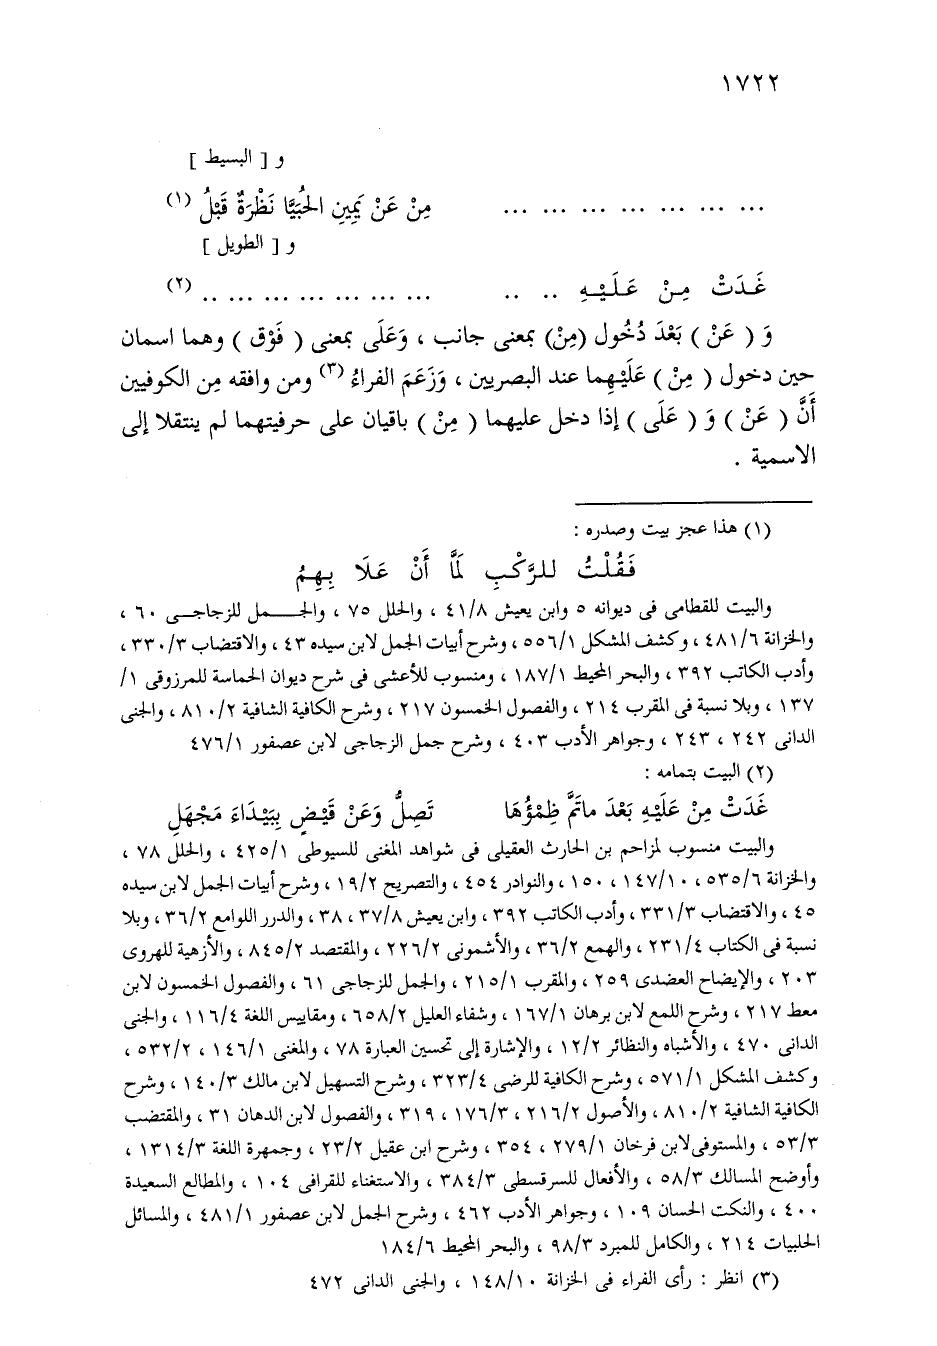 ١٧٢٢
و [ البسيط ]
... ... ... ... ... ... ... مِنْ عَنْ يَمِينِ الحُبَيَّا نَظْرَةٌ قَبْلُ (١)
و [ الطويل ]
غَدَتْ مِنْ عَلَيْهِ .. .. ... ... ... ... ... .. (٢)
وَ ( عَنْ ) بَعْدَ دُخُول (مِنْ) بمعنى جانب ، وَعَلَى بمعنى ( فَوْق ) وهما اسمان
حين دخول ( مِنْ ) عَلَيْهما عند البصريين ، وَزَعَمَ الفراءُ (٣) ومن وافقه مِن الكوفيين
أَنَّ ( عَنْ ) وَ ( عَلَى ) إذا دخل عليهما ( مِنْ ) باقيان على حرفيتهما لم ينتقلا إلى
الاسمية .
(١) هذا عجز بيت وصدره :
فَقُلْتُ للرَّكْبِ لَمَّا أَنْ عَلَا بِهِمُ
والبيت للقطامى فى ديوانه ٥ وابن يعيش ٤١/٨ ، والحلل ٧٥ ، والجمل للزجاجى ٦٠ ،
والخزانة ٤٨١/٦ ، وكشف المشكل ٥٥٦/١ ، وشرح أبيات الجمل لابن سيده ٤٣ ، والاقتضاب ٣٣٠/٣ ،
وأدب الكاتب ٣٩٢ ، والبحر المحيط ١٨٧/١ ، ومنسوب للأعشى فى شرح ديوان الحماسة للمرزوقى ١/
١٣٧ ، وبلا نسبة فى المقرب ٢١٤ ، والفصول الخمسون ٢١٧ ، وشرح الكافية الشافية ٨١٠/٢ ، والجنى
الدانى ٢٤٢ ، ٢٤٣ ، وجواهر الأدب ٤٠٣ ، وشرح جمل الزجاجى لابن عصفور ٤٧٦/١
(٢) البيت بتمامه :
غَدَتْ مِنْ عَلَيْهِ بَعْدَ ماتَمَّ ظِمْؤُهَا تَصِلُّ وَعَنْ قَيْضٍ بِبَيْدَاءَ مَجْهَلِ
والبيت منسوب لمزاحم بن الحارث العقيلى فى شواهد المغنى للسيوطى ٤٢٥/١ ، والحلل ٧٨ ،
والخزانة ٥٣٥/٦ ، ١٤٧/١٠ ، ١٥٠ ، والنوادر ٤٥٤ ، والتصريح ١٩/٢ ، وشرح أبيات الجمل لابن سيده
٤٥ ، والاقتضاب ٣٣١/٣ ، وأدب الكاتب ٣٩٢ ، وابن يعيش ٣٧/٨ ، ٣٨ ، والدرر اللوامع ٣٦/٢ ، وبلا
نسبة فى الكتاب ٢٣١/٤ ، والهمع ٣٦/٢ ، والأشمونى ٢٢٦/٢ ، والمقتصد ٨٤٥/٢ ، والأزهية للهروى
٢٠٣ ، والإيضاح العضدى ٢٥٩ ، والمقرب ٢١٥/١ ، والجمل للزجاجى ٦١ ، والفصول الخمسون لابن
معط ٢١٧ ، وشرح اللمع لابن برهان ١٦٧/١ ، وشفاء العليل ٦٥٨/٢ ، ومقاييس اللغة ١١٦/٤ ، والجنى
الدانى ٤٧٠ ، والأشباه والنظائر ١٢/٢ ، والإشارة إلى تحسين العبارة ٧٨ ، والمغنى ١٤٦/١ ، ٥٣٢/٢ ،
وكشف المشكل ٥٧١/١ ، وشرح الكافية للرضى ٣٢٣/٤ ، وشرح التسهيل لابن مالك ١٤٠/٣ ، وشرح
الكافية الشافية ٨١٠/٢ ، والأصول ٢١٦/٢ ، ١٧٦/٣ ، ٣١٩ ، والفصول لابن الدهان ٣١ ، والمقتضب
٥٣/٣ ، والمستوفى لابن فرخان ٢٧٩/١ ، ٣٥٤ ، وشرح ابن عقيل ٢٣/٢ ، وجمهرة اللغة ١٣١٤/٣ ،
وأوضح المسالك ٥٨/٣ ، والأفعال للسرقسطى ٣٨٤/٣ ، والاستغناء للقرافى ١٠٤ ، والمطالع السعيدة
٤٠٠ ، والنكت الحسان ١٠٩ ، وجواهر الأدب ٤٦٢ ، وشرح الجمل لابن عصفور ٤٨١/١ ، والمسائل
الحلبيات ٢١٤ ، والكامل للمبرد ٩٨/٣ ، والبحر المحيط ١٨٤/٦
(٣) انظر : رأى الفراء فى الخزانة ١٤٨/١٠ ، والجنى الدانى ٤٧٢